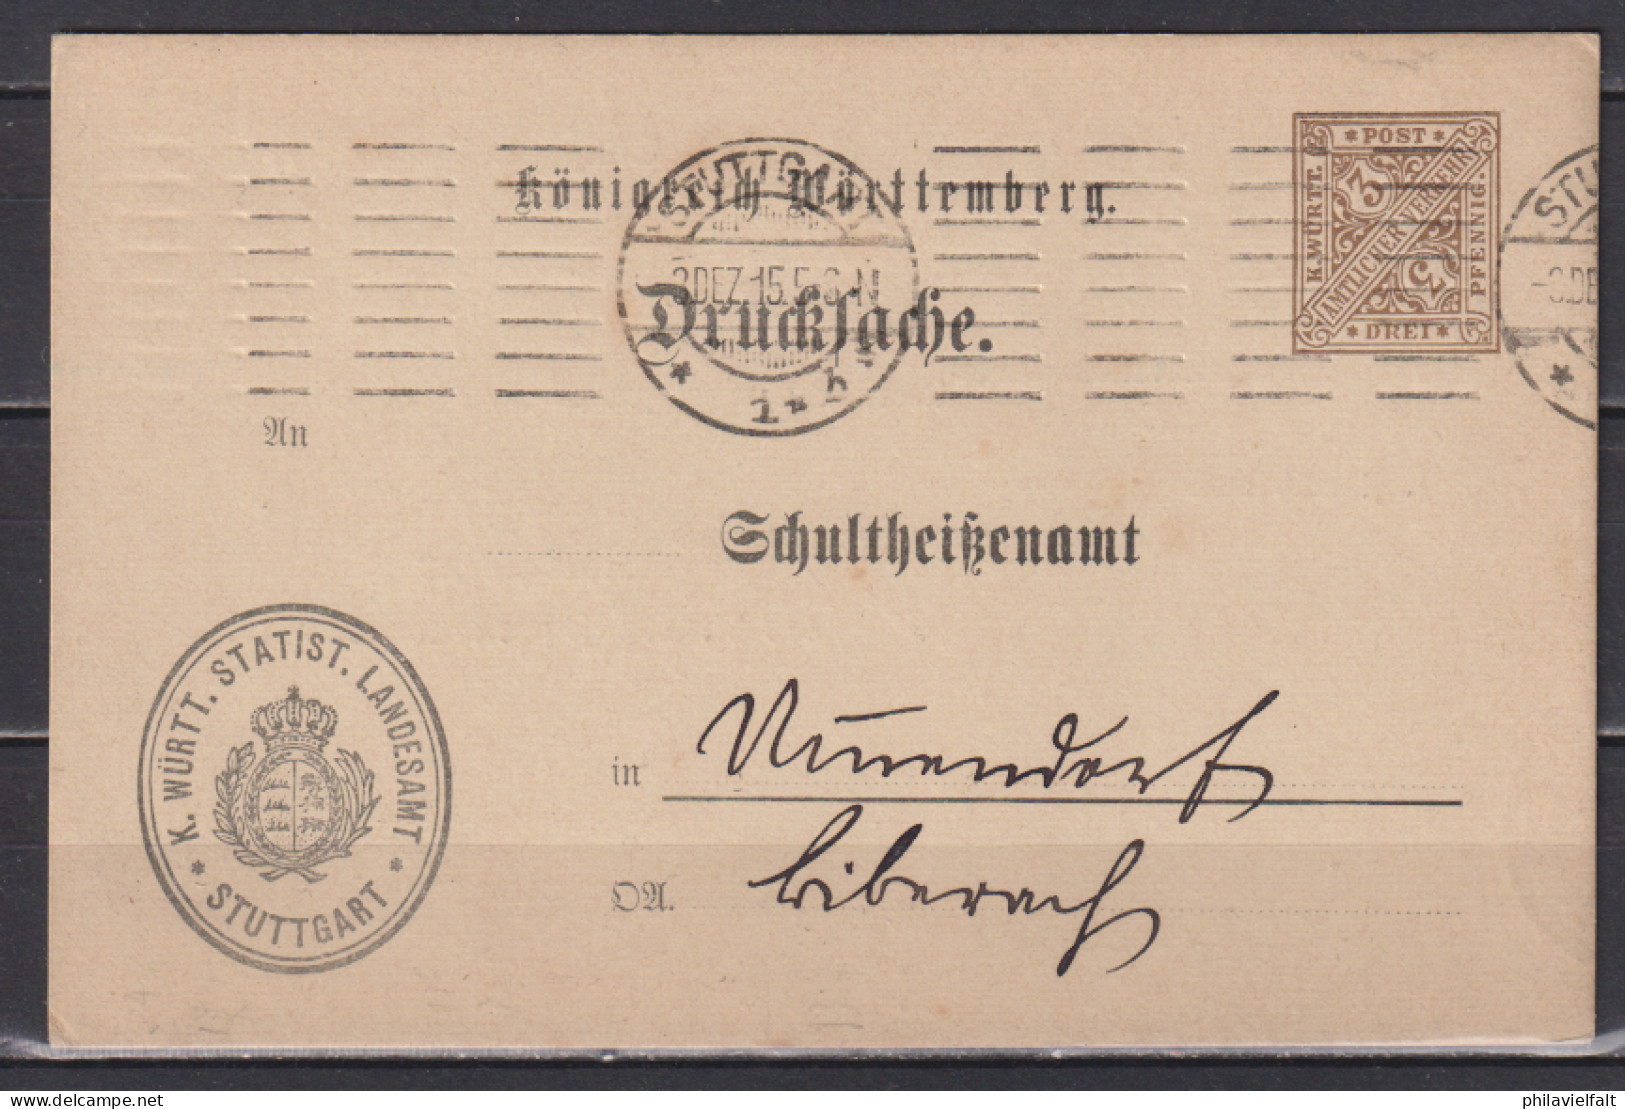 Königreich Württemberg.
STUTTGART
DEZ.15.5-6 N
* 1 *
Drucksache.
* POST *
K.WÜRTT.
3
AMTLICHER VERKEHR
3
PFENNIG
* DREI *
STU
An
Schultheißenamt
K. WÜRTT. STATIST. LANDESAMT
* STUTTGART *
in
OA. Biberach
delcampe.net
philavielfalt